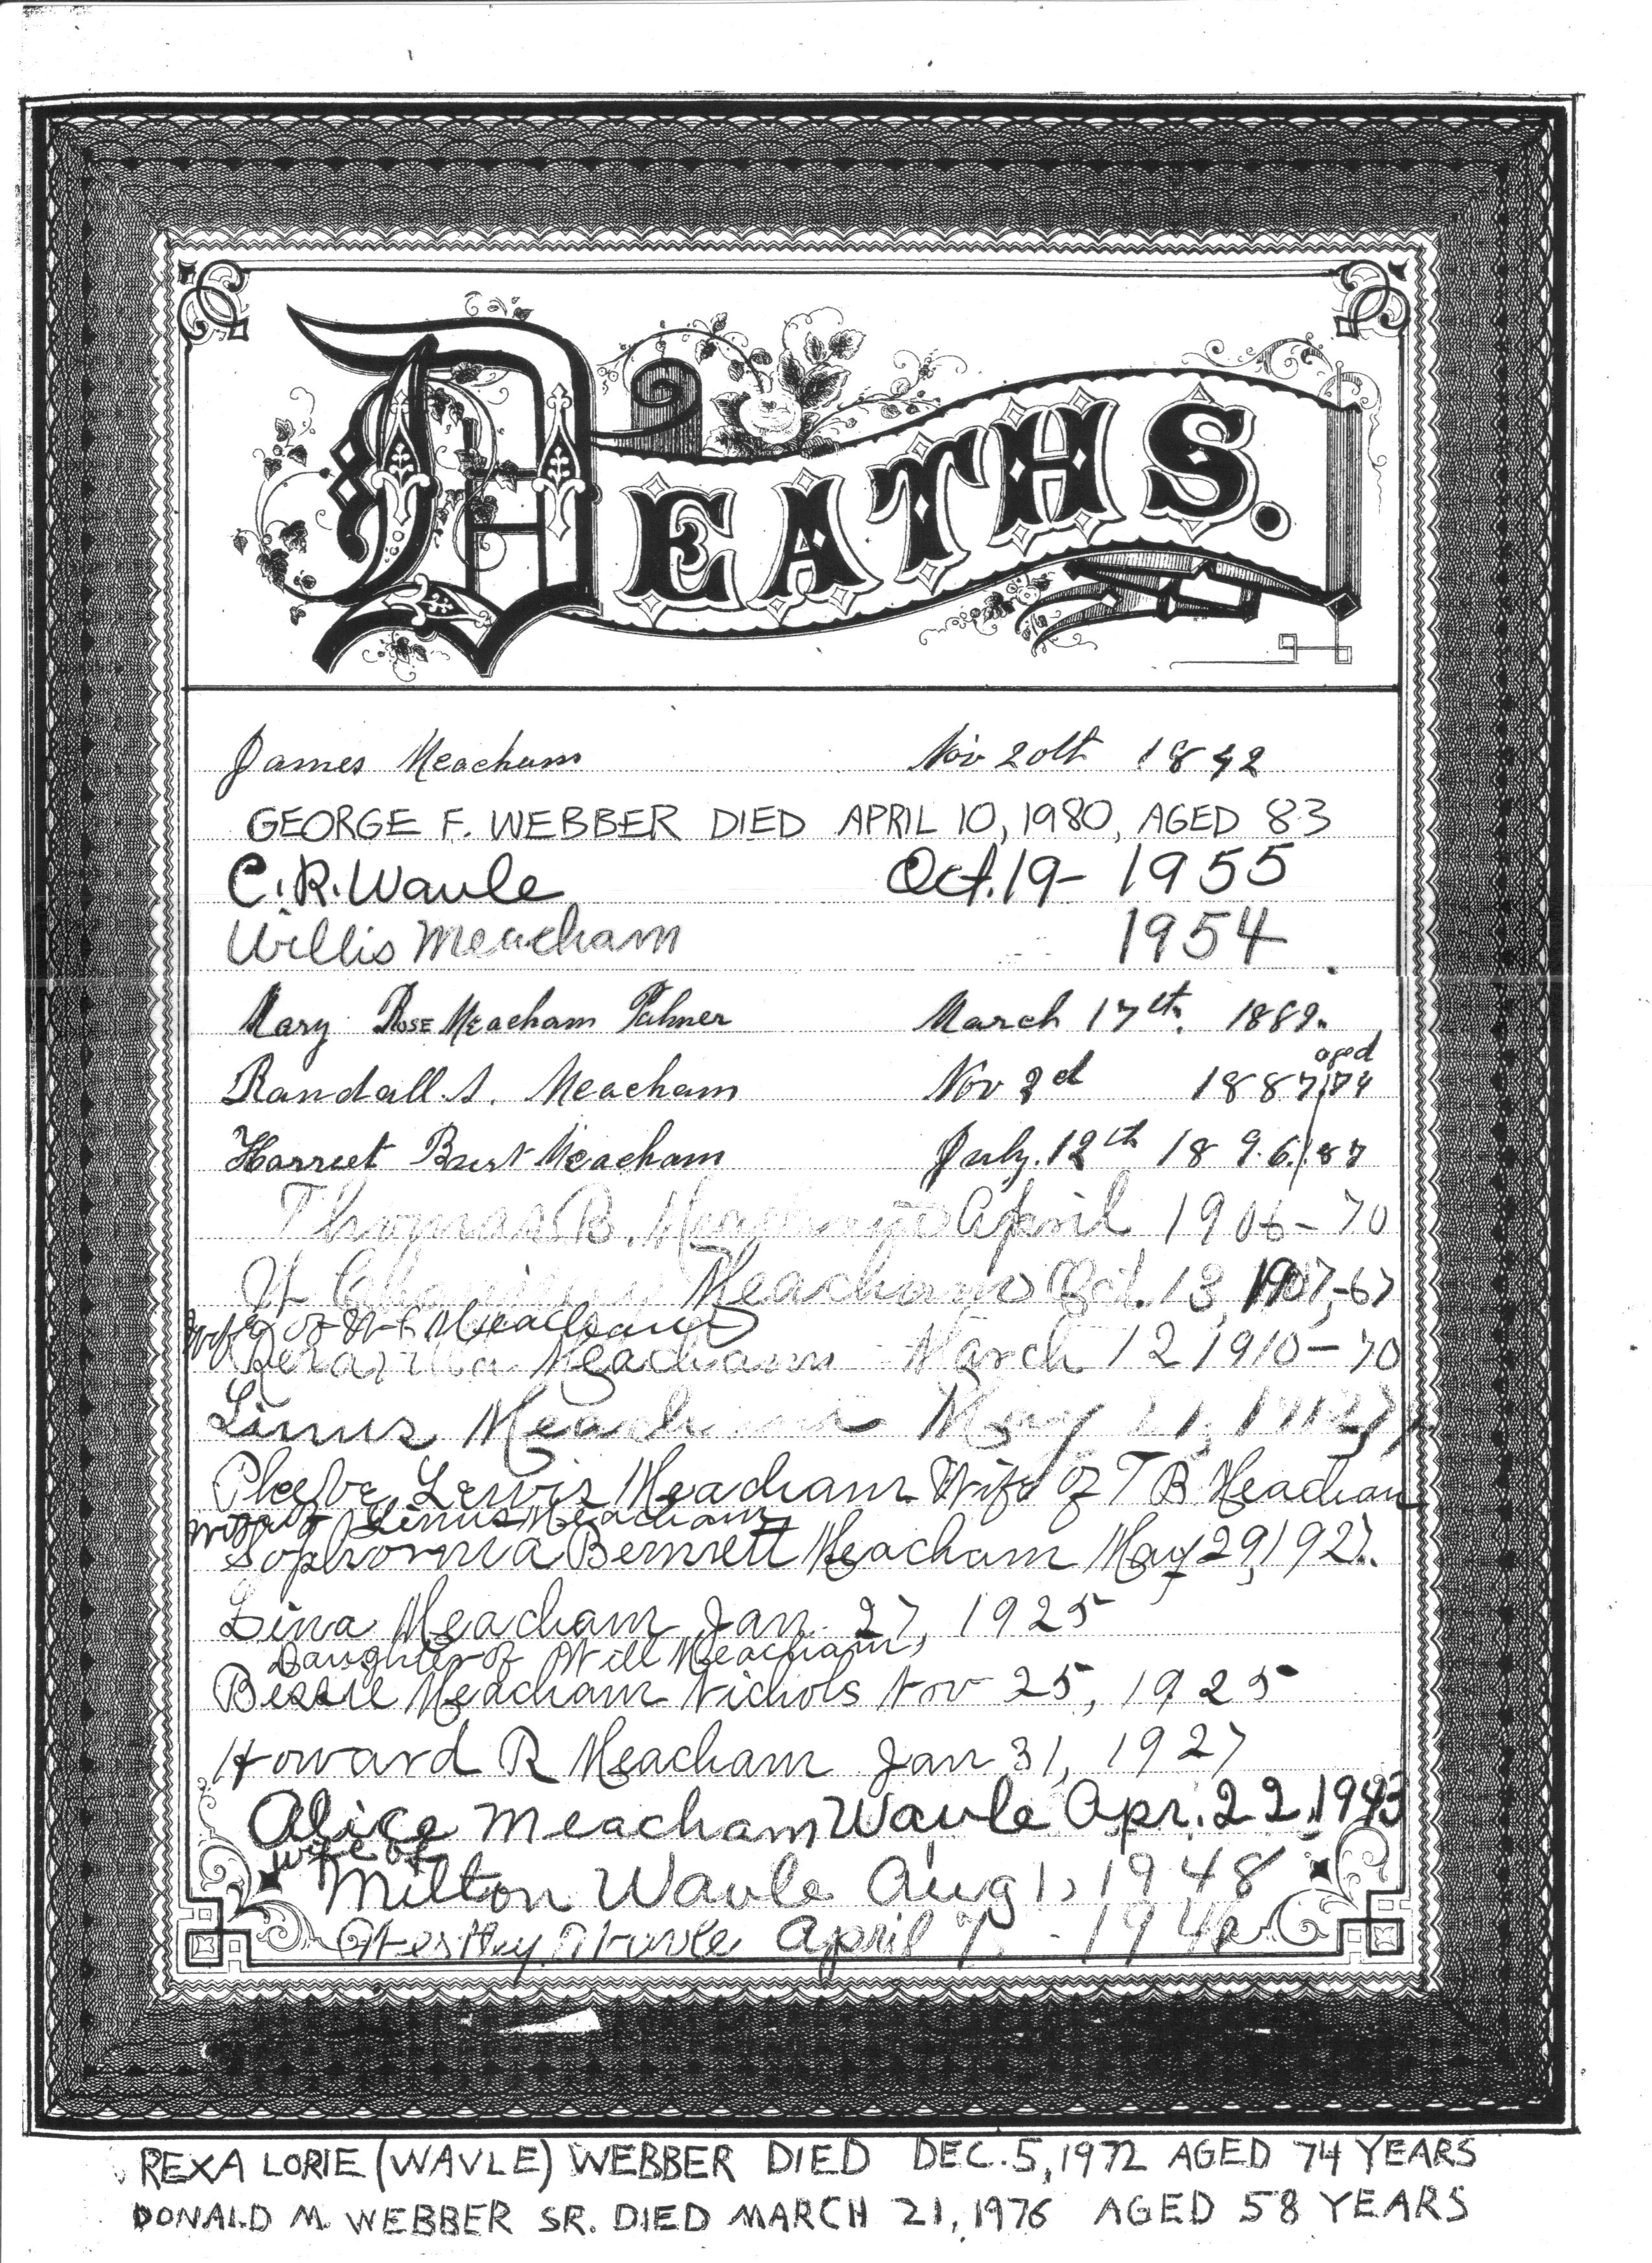 DEATHS.
James Meacham Nov 20th 1842
GEORGE F. WEBBER DIED APRIL 10, 1980, AGED 83
C. R. Wavle Oct. 19- 1955
Willis Meacham 1954
Mary Rose Meacham Palmer March 17th. 1889.
aged
Randall. S. Meacham Nov 2d 1887 74
Harriet Burt Meacham July. 12th 1896. 87
Thomas B. Meacham April 1906-70
Meacham Oct. 13, 1907,-67
Wife of Meacham
Meacham March 12 1910-70
Linus Meacham May
Phoebe Lewis Meacham Wife of T B Meacham
Wife of Linus Meacham
Sophronia Bennett Meacham May 29, 192
Lina Meacham Jan. 27, 1925
Daughter of Will Meacham,
Bessie Meacham Nichols Nov 25, 1925
Howard R Meacham Jan 31, 1927
Alice Meacham Wavle Apr. 22, 1943
wife of
Milton Wavle Aug 1, 1948
Wavle April 7
REXA LORIE (WAVLE) WEBBER DIED DEC. 5, 1972 AGED 74 YEARS
DONALD M. WEBBER SR. DIED MARCH 21, 1976 AGED 58 YEARS